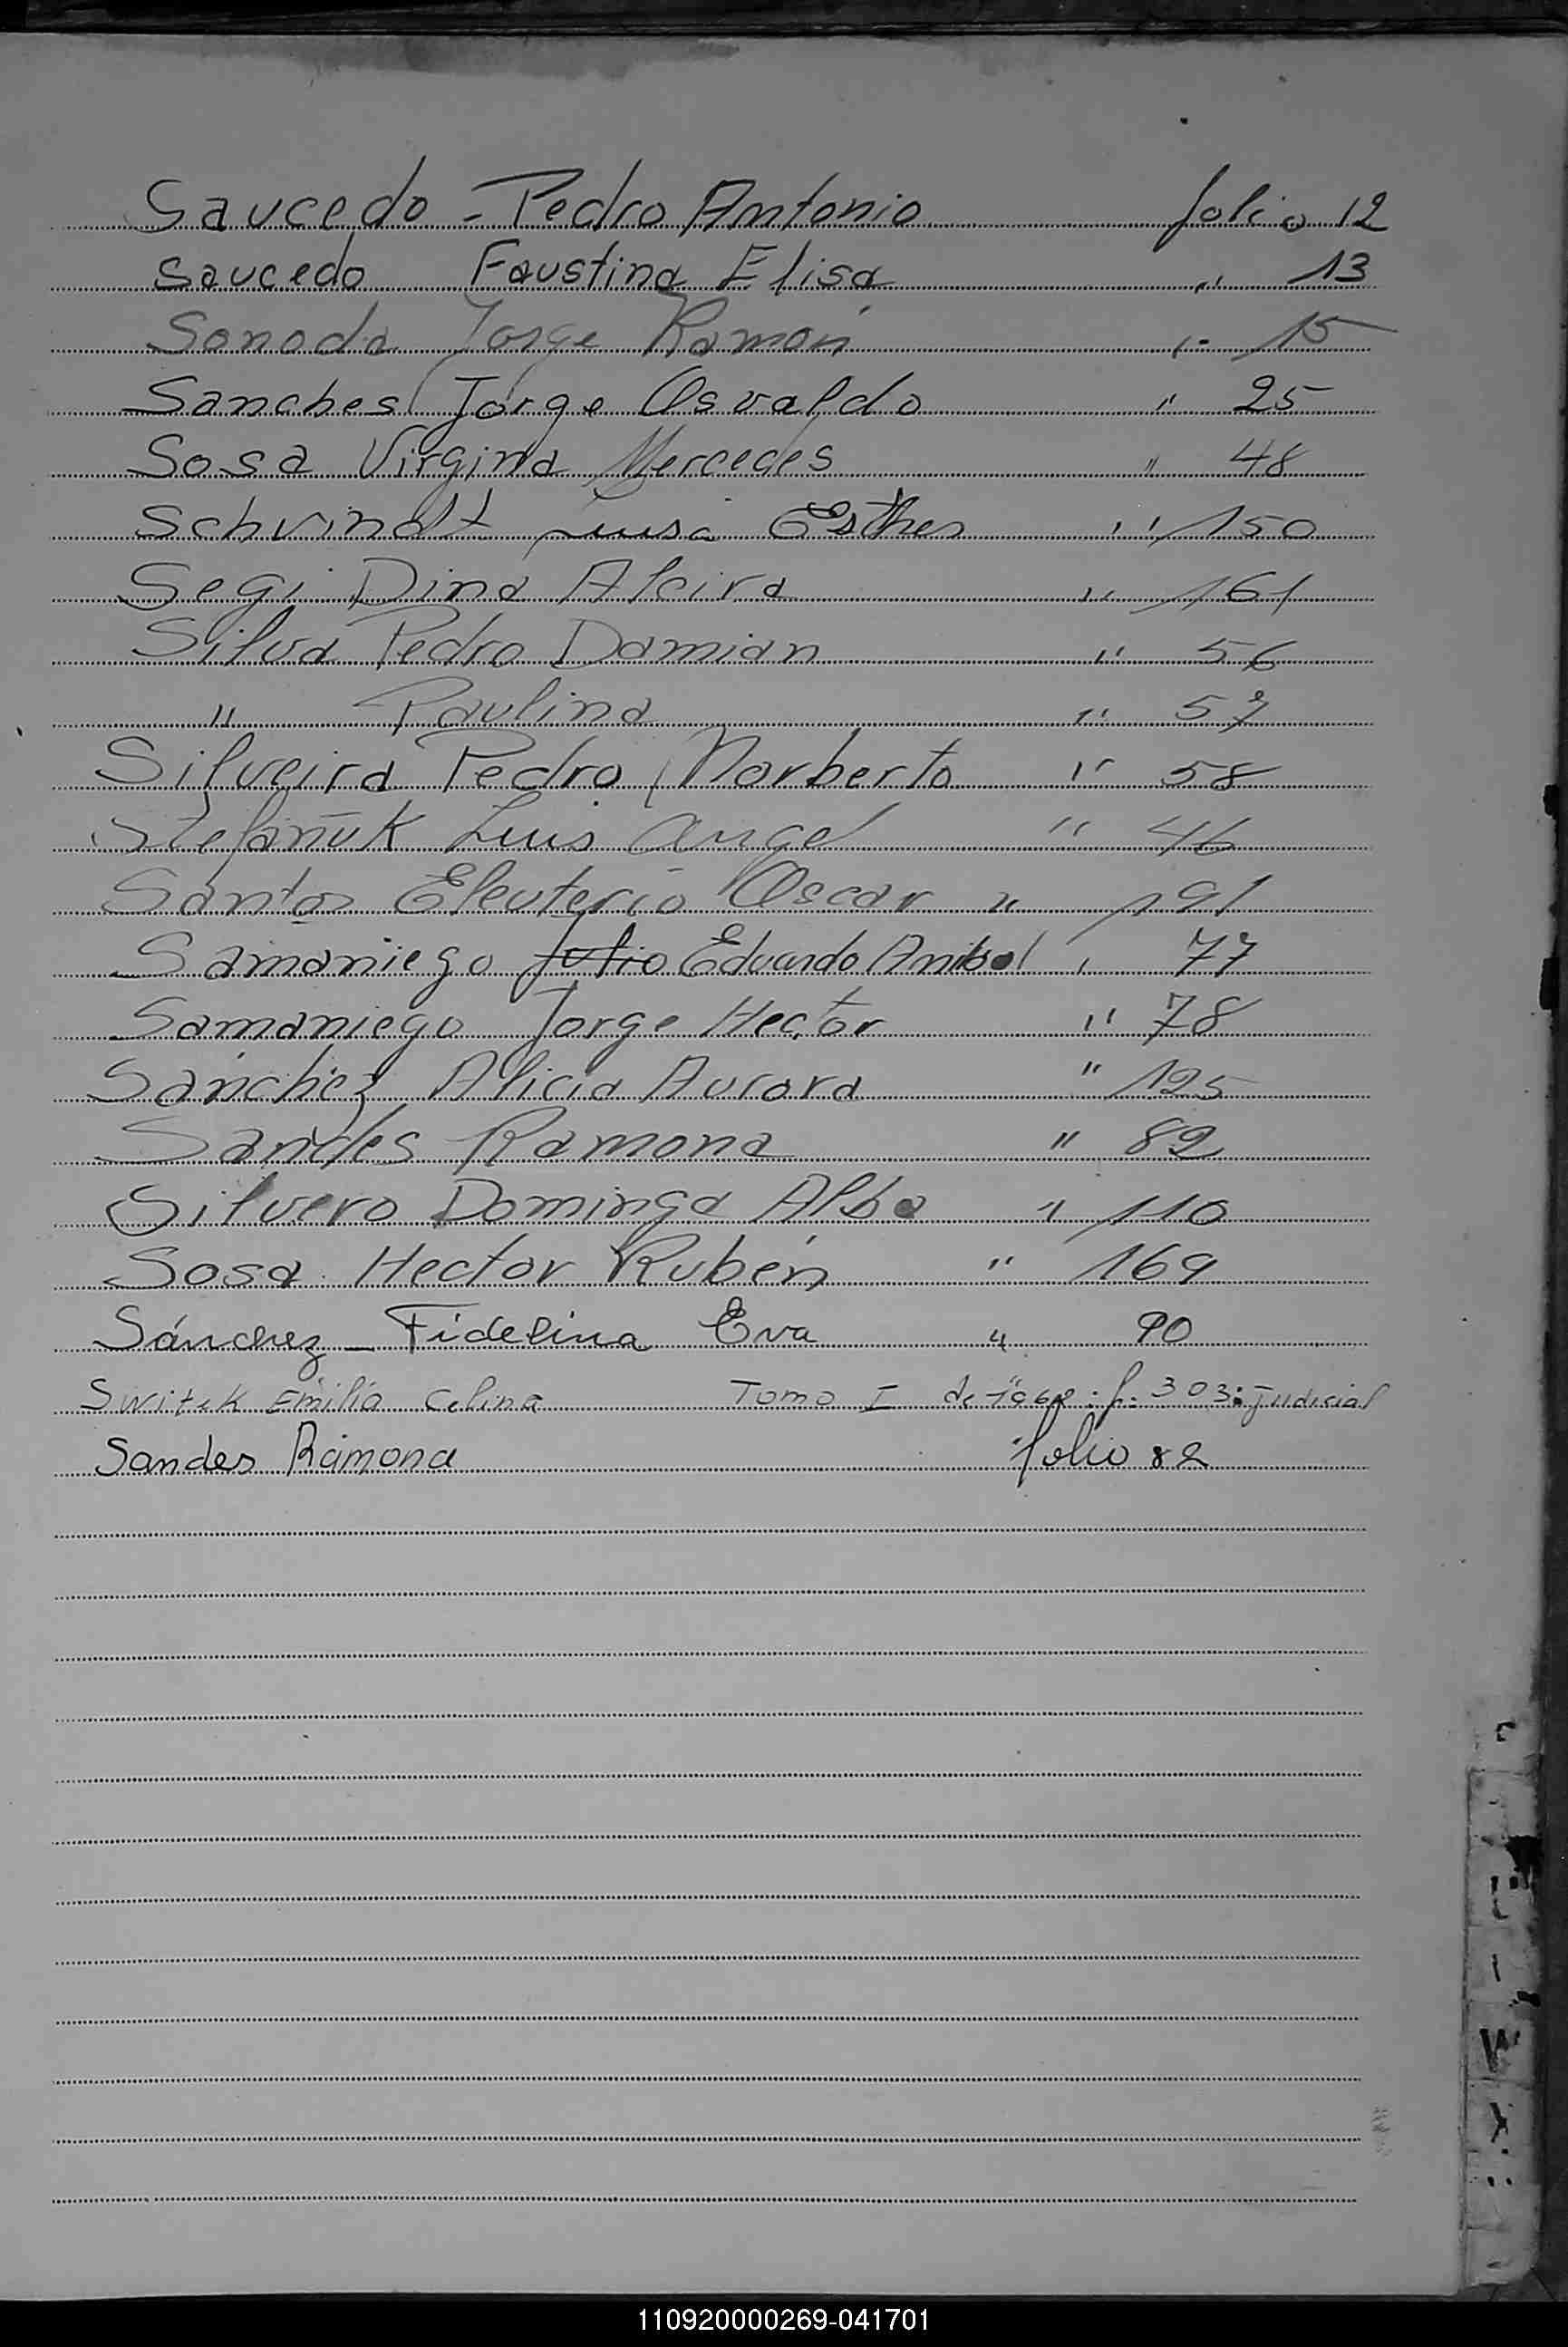 Saucedo - Pedro Antonio folio 12
Saucedo Faustina Elisa " 13
Sonoda Jorge Ramón " 15
Sanches Jorge Osvaldo " 25
Sosa Virginia Mercedes " 48
Schvindt Luisa Esther " 150
Segi Dina Alcira " 161
Silva Pedro Damian " 56
" Paulina " 57
Silveira Pedro Norberto " 58
Stefañuk Luis Angel " 46
Santos Eleuterio Oscar " 191
Samaniego Julio Eduardo Anibal " 77
Samaniego Jorge Hector " 78
Sánchez Alicia Aurora " 125
Sandes Ramona " 82
Silvero Dominga Alba " 110
Sosa Hector Rubén " 169
Sánchez - Fidelina Eva " 90
Switek Emilia Celina Tomo I de f. 303: Judicial
Sandes Ramona folio 82
W
110920000269-041701